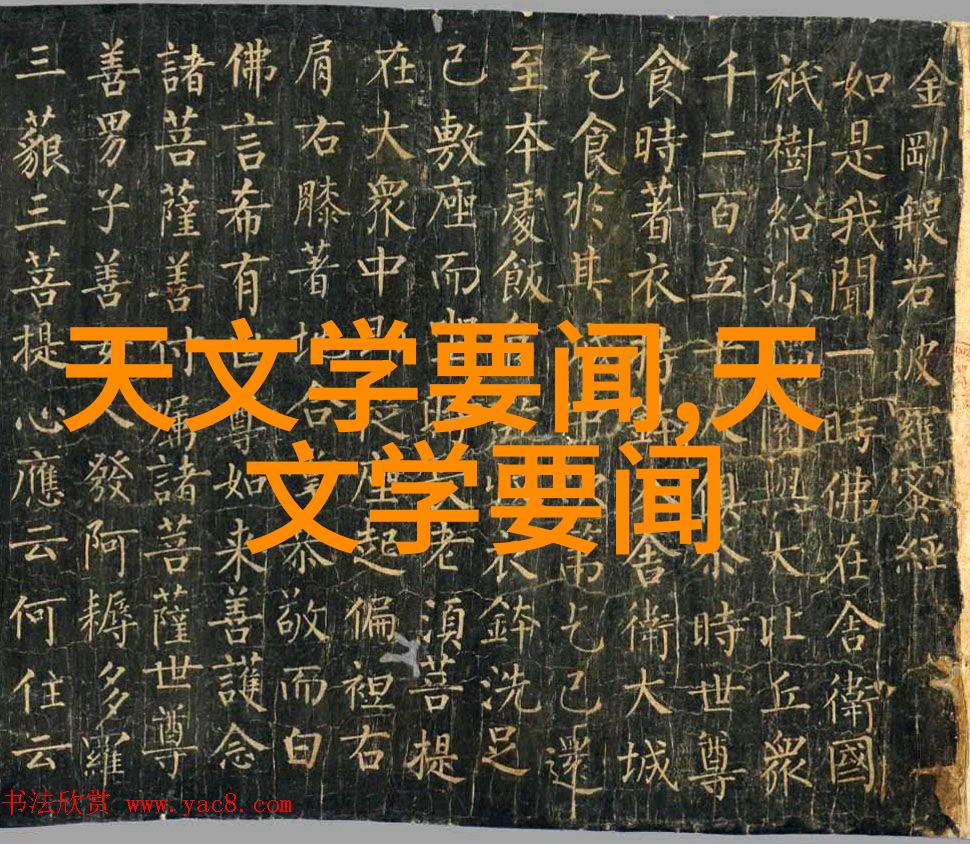 金剛般若波羅蜜經
如是我聞一時佛在舍衛國
祇樹給孤與大比丘眾
千二百五俱尒時世尊
食時著衣舍衛大城
乞食於其乞已還
至本處飯衣鉢洗足
已敷座而老須菩提
在大眾中座起偏袒右
肩右膝著地合恭敬而白
佛言希有世尊如来善護念
諸菩薩善付囑諸菩薩世尊
善男子善女人發阿耨多羅
三藐三菩提心應云何住云
天文学要闻,天
文学要闻
书法欣赏 www.yac8.com